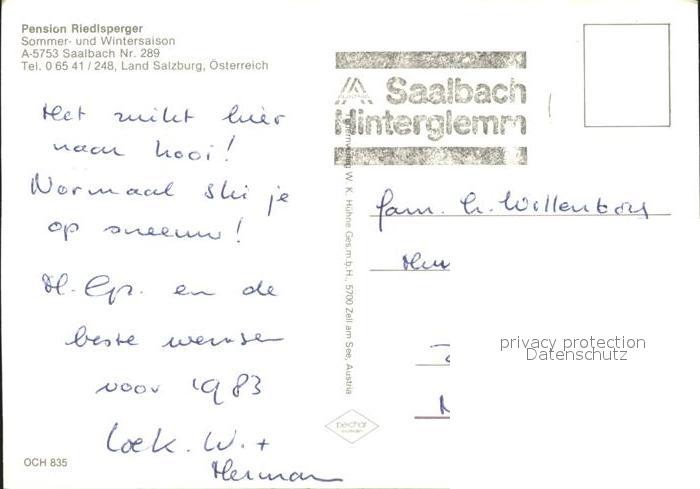 Pension Riedlsperger
Sommer- und Wintersaison
A-5753 Saalbach Nr. 289
Tel. 0 65 41 / 248, Land Salzburg, Österreich
Saalbach
Hinterglemm
Het ruikt hier
naar hooi!
Normaal ski je
op sneeuw!
H. Gr. en de
beste wensen
voor 1983
Loek. W. +
Herman
OCH 835
W. K. Hühne Ges.m.b.H., 5700 Zell am See, Austria
pechar
Fam. Willenborg
privacy protection
Datenschutz